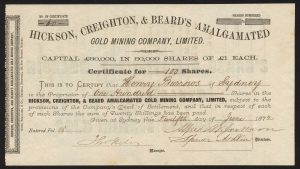 No. OF CERTIFICATE
HICKSON, CREIGHTON, & BEARD'S AMALGAMATED
GOLD MINING COMPANY, LIMITED.
CAPITAL £60,000, IN 60,000 SHARES OF £1 EACH.
Certificate for 100 Shares.
THIS IS TO CERTIFY that Henry Burrows of Sydney
is the Proprietor of One Hundred Shares in the
HICKSON, CREIGHTON, & BEARD AMALGAMATED GOLD MINING COMPANY, LIMITED, subject to the
provisions of the Company's Deed of Settlement, and that in respect of each
of such Shares the sum of Twenty Shillings has been paid.
Given at Sydney this Twelfth day of June 1872
Entered Fol.